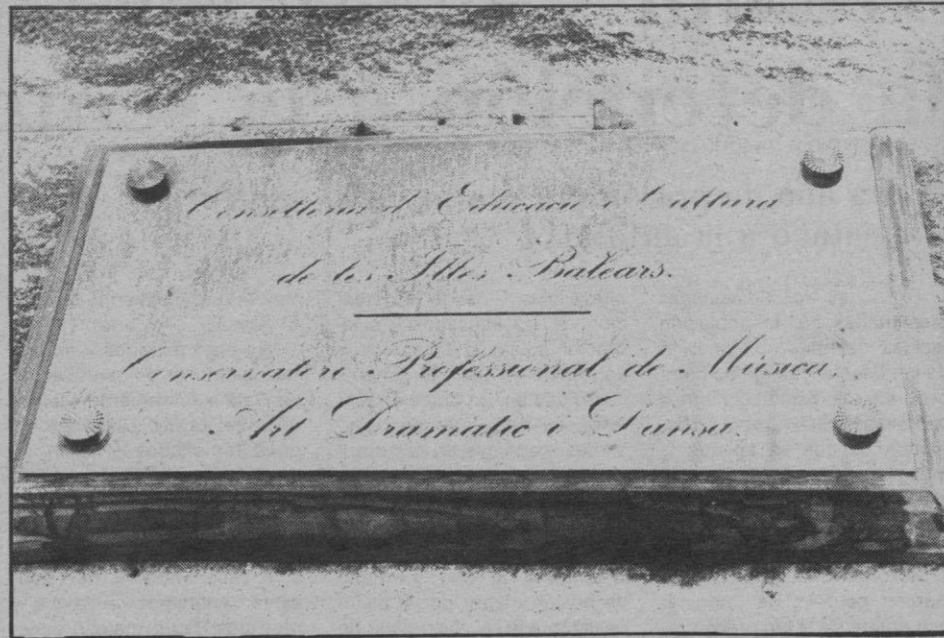 Conselleria d'Educació i Cultura
de les Illes Balears.
Conservatori Professional de Música,
Art Dramatic i Dansa.